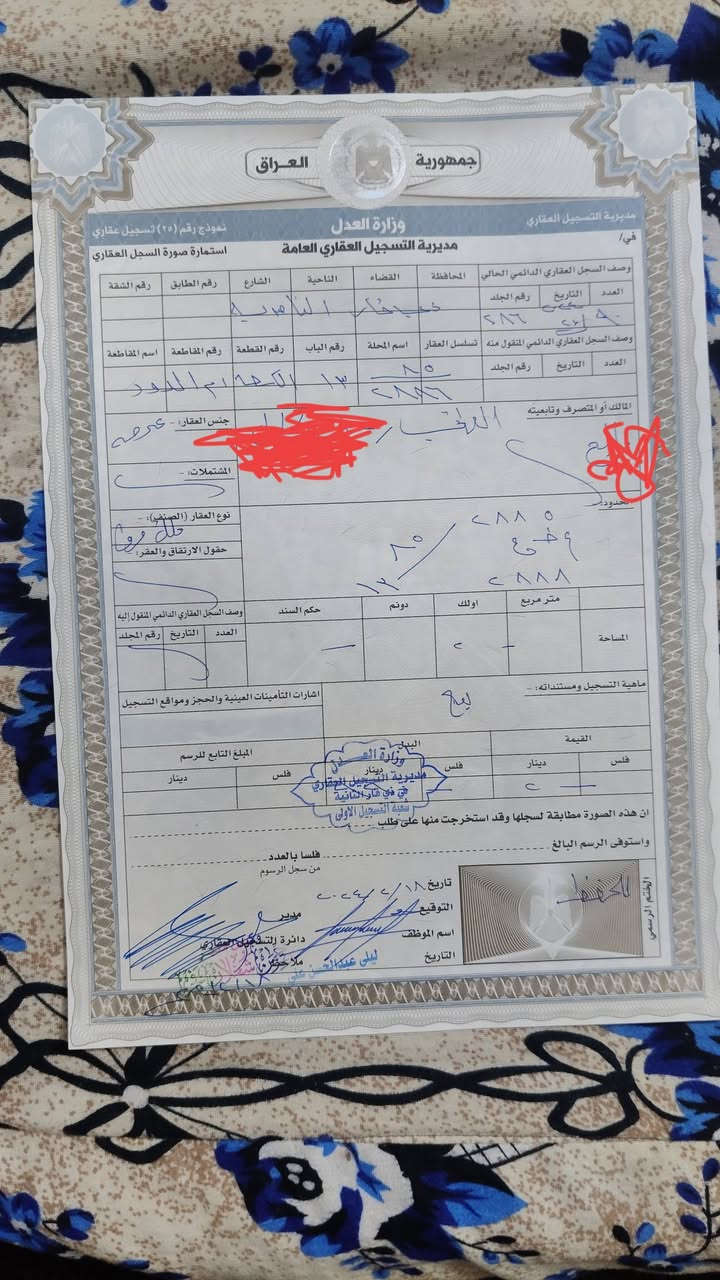 جمهورية العراق
مديرية التسجيل العقاري
وزارة العدل
نموذج رقم (٢٥) تسجيل عقاري
في/
مديرية التسجيل العقاري العامة
استمارة صورة السجل العقاري
وصف السجل العقاري الدائمي الحالي
المحافظة القضاء الناحية الشارع رقم الطابق رقم الشقة
العدد التاريخ رقم الجلد
ذي قار الناصرية
٢٨٦
وصف السجل العقاري الدائمي المنقول منه
تسلسل العقار اسم المحلة رقم الباب رقم القطعة رقم المقاطعة اسم المقاطعة
العدد التاريخ رقم الجلد
٨٥
٢٨٨٦
١٣
المالك أو المتصرف وتابعيته
جنس العقار: - عرصه
المشتملات: -
الحدود:
نوع العقار (الصنف): -
٢٨٨٥
٨٥
١٣
٢٨٨٨
حقول الارتفاق والعقر: -
المساحة
متر مربع اولك دونم
حكم السند
وصف السجل العقاري الدائمي المنقول إليه
العدد التاريخ رقم المجلد
٢
ماهية التسجيل ومستنداته: -
بيع
اشارات التأمينات العينية والحجز ومواقع التسجيل
القيمة البدل المبلغ التابع للرسم
فلس دينار فلس دينار فلس دينار
وزارة العدل
مديرية التسجيل العقاري
في ذي قار الثانية
شعبة التسجيل الاولى
ان هذه الصورة مطابقة لسجلها وقد استخرجت منها على طلب
واستوفى الرسم البالغ
فلسا بالعدد
من سجل الرسوم
تاريخ ٢٠٢٤/٢/١٨
التوقيع
اسم الموظف
ليلى عبدالحسن علي
التاريخ
مدير
دائرة التسجيل العقاري
الختم الرسمي